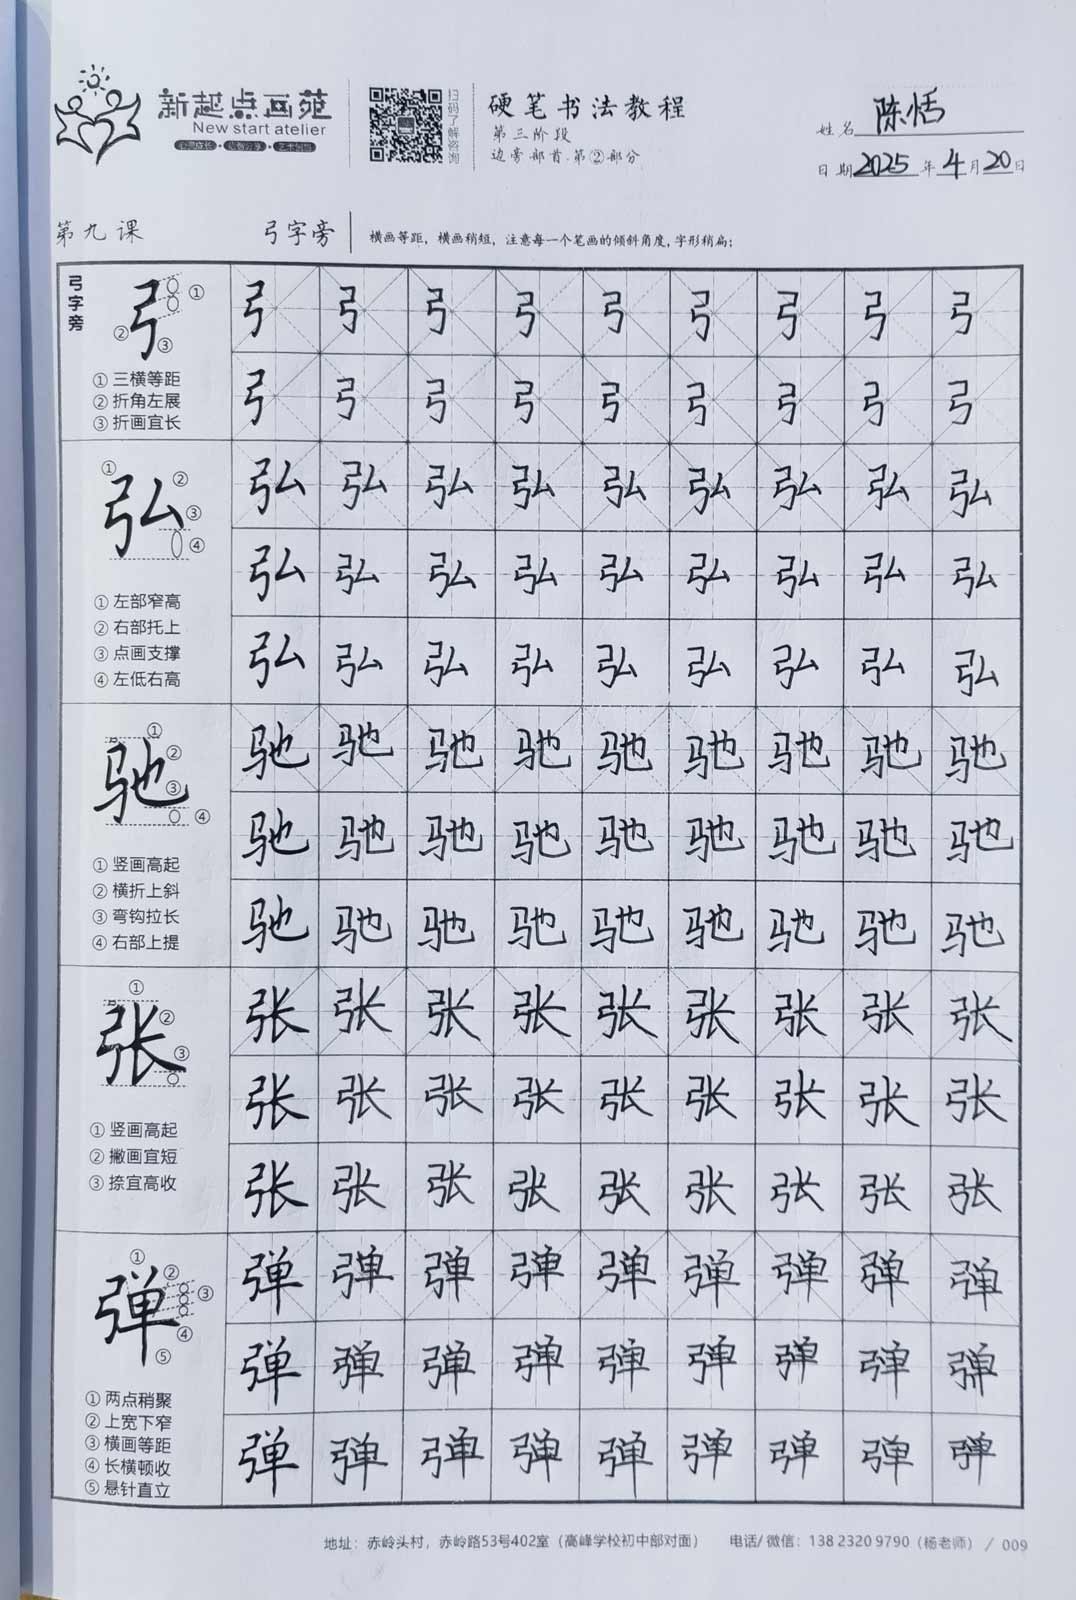 新起点画苑
New start atelier
扫码了解咨询
硬笔书法教程
第三阶段
边旁部首.第②部分
姓名 陈恬
日期 2025 年 4 月 20 日
第九课 弓字旁 横画等距，横画稍短，注意每一个笔画的倾斜角度，字形稍扁；
弓字旁
弓 ① ② ③
① 三横等距
② 折角左展
③ 折画宜长
弓 弓 弓 弓 弓 弓 弓 弓 弓
弓 弓 弓 弓 弓 弓 弓 弓 弓
弘 ① ② ③ ④
① 左部窄高
② 右部托上
③ 点画支撑
④ 左低右高
弘 弘 弘 弘 弘 弘 弘 弘 弘
弘 弘 弘 弘 弘 弘 弘 弘 弘
弘 弘 弘 弘 弘 弘 弘 弘 弘
驰 ① ② ③ ④
① 竖画高起
② 横折上斜
③ 弯钩拉长
④ 右部上提
驰 驰 驰 驰 驰 驰 驰 驰 驰
驰 驰 驰 驰 驰 驰 驰 驰 驰
驰 驰 驰 驰 驰 驰 驰 驰 驰
张 ① ② ③
① 竖画高起
② 撇画宜短
③ 捺宜高收
张 张 张 张 张 张 张 张 张
张 张 张 张 张 张 张 张 张
张 张 张 张 张 张 张 张 张
弹 ① ② ③ ④ ⑤
① 两点稍聚
② 上宽下窄
③ 横画等距
④ 长横顿收
⑤ 悬针直立
弹 弹 弹 弹 弹 弹 弹 弹 弹
弹 弹 弹 弹 弹 弹 弹 弹 弹
弹 弹 弹 弹 弹 弹 弹 弹 弹
地址：赤岭头村，赤岭路53号402室（高峰学校初中部对面） 电话/微信：138 2320 9790（杨老师） / 009